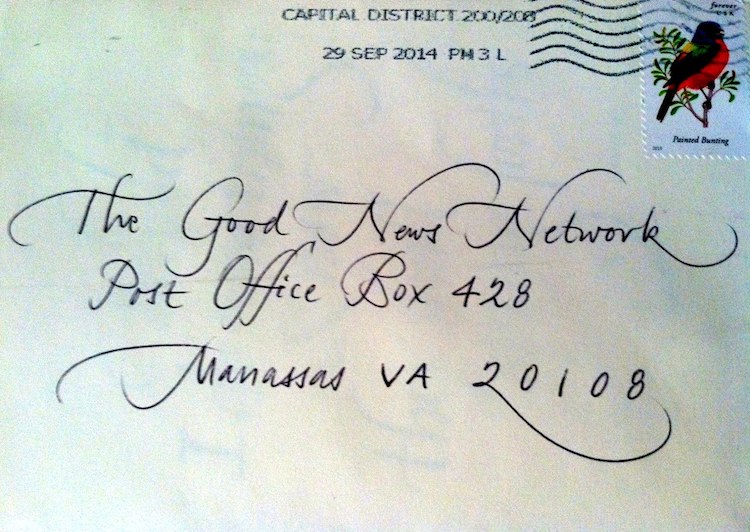 CAPITAL DISTRICT 200/208
29 SEP 2014 PM 3 L
forever
USA
Painted Bunting
The Good News Network
Post Office Box 428
Manassas VA 20108